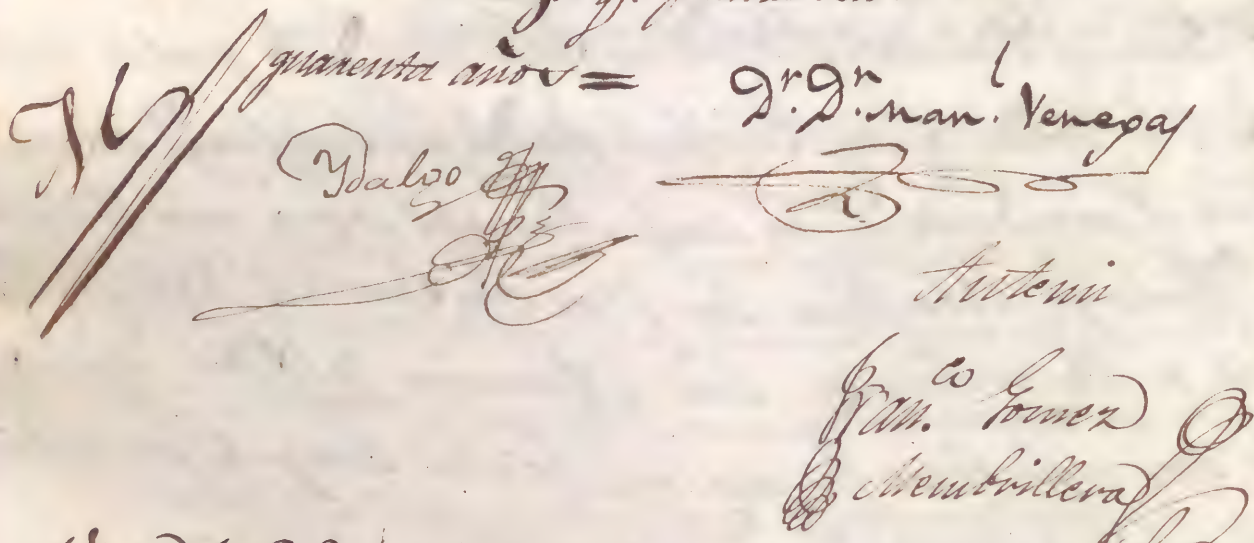 quarenta años =
Dr. Dn. Man.l Venegas
Ydalgo
Ante mi
Fran.co Gomez
Membrillera